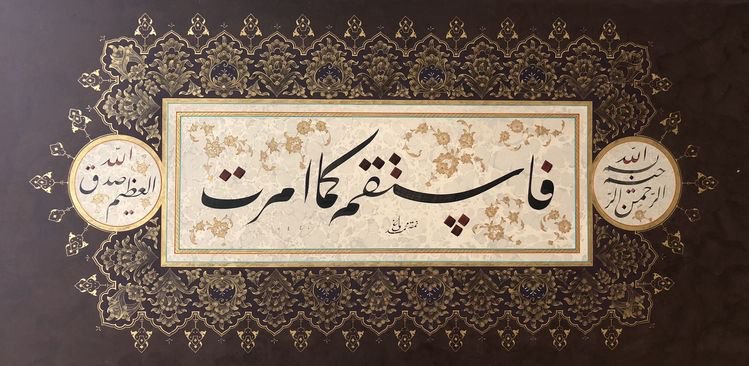 بسم الله الرحمن الرحيم
فاستقم كما امرت
صدق الله العظيم